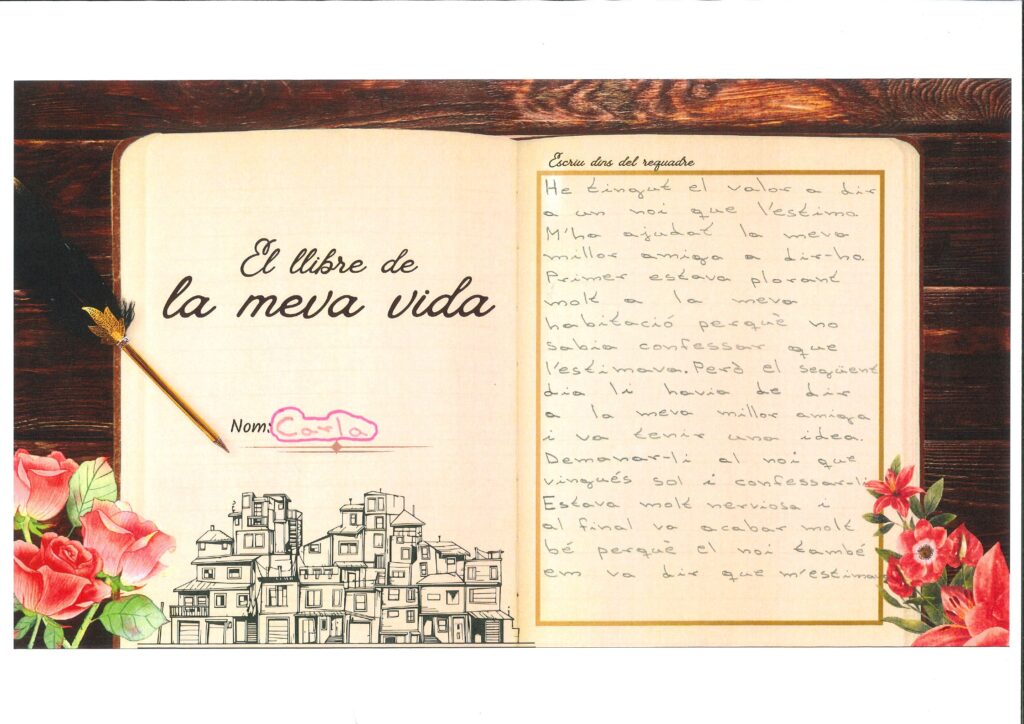 El llibre de
la meva vida
Nom: Carla
Escriu dins del requadre
He tingut el valor a dir
a un noi que l'estimo
M'ha ajudat la meva
millor amiga a dir-ho.
Primer estava plorant
molt a la meva
habitació perquè no
sabia confessar que
l'estimava. Però el següent
dia li havia de dir
a la meva millor amiga
i va tenir una idea.
Demanar-li al noi que
vingués sol i confessar-li
Estava molt nerviosa i
al final va acabar molt
bé perquè el noi també
em va dir que m'estimava